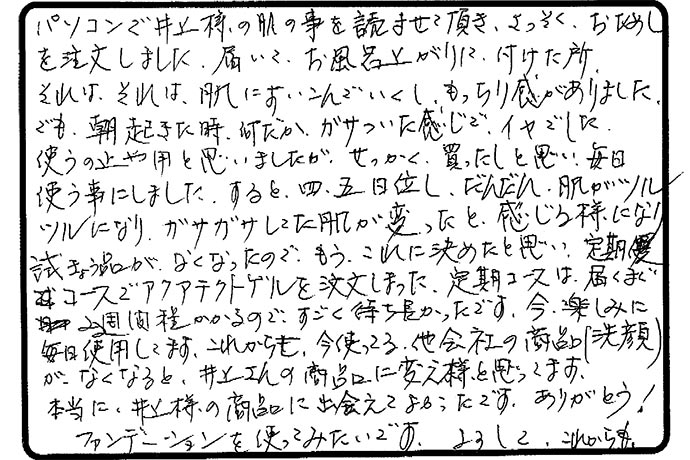 パソコンで井上様の肌の事を読ませて頂き、さっそく、おためし
を注文しました。届いて、お風呂上がりに、付けた所、
それは、それは、肌にすいこんでいくし、もっちり感がありました。
でも、朝起きた時、何だか、ガサついた感じで、イヤでした。
使うの止や用と思いましたが、せっかく、買ったしと思い、毎日
使う事にしました。すると、四、五日位し、だんだん、肌がツル
ツルになり、ガサガサしてた肌が変ったと、感じる様になり
試きょう品が、なくなったので、もう、これに決めたと思い、定期
コースでアクアテクトゲルを注文しまった。定期コースは、届くまで
2週間程かかるので、すごく待ち長かったです。今、楽しみに
毎日使用してます。これからも、今使ってる、他会社の商品(洗顔)
が、なくなると、井上さんの商品に変え様と思ってます。
本当に、井上様の商品に出会えてよかったです。ありがとう!
ファンデーションを使ってみたいです。よろしく、これからも。